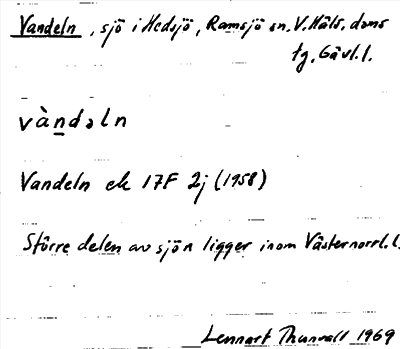 Vandeln, sjö i Hedsjö, Ramsjö sn. V. Häls. doms
tg, Gävl. l.
vàn̲dəln
Vandeln ek 17F 2j (1958)
Större delen av sjön ligger inom Västernorrl. l.
Lennart Thunvall 1969